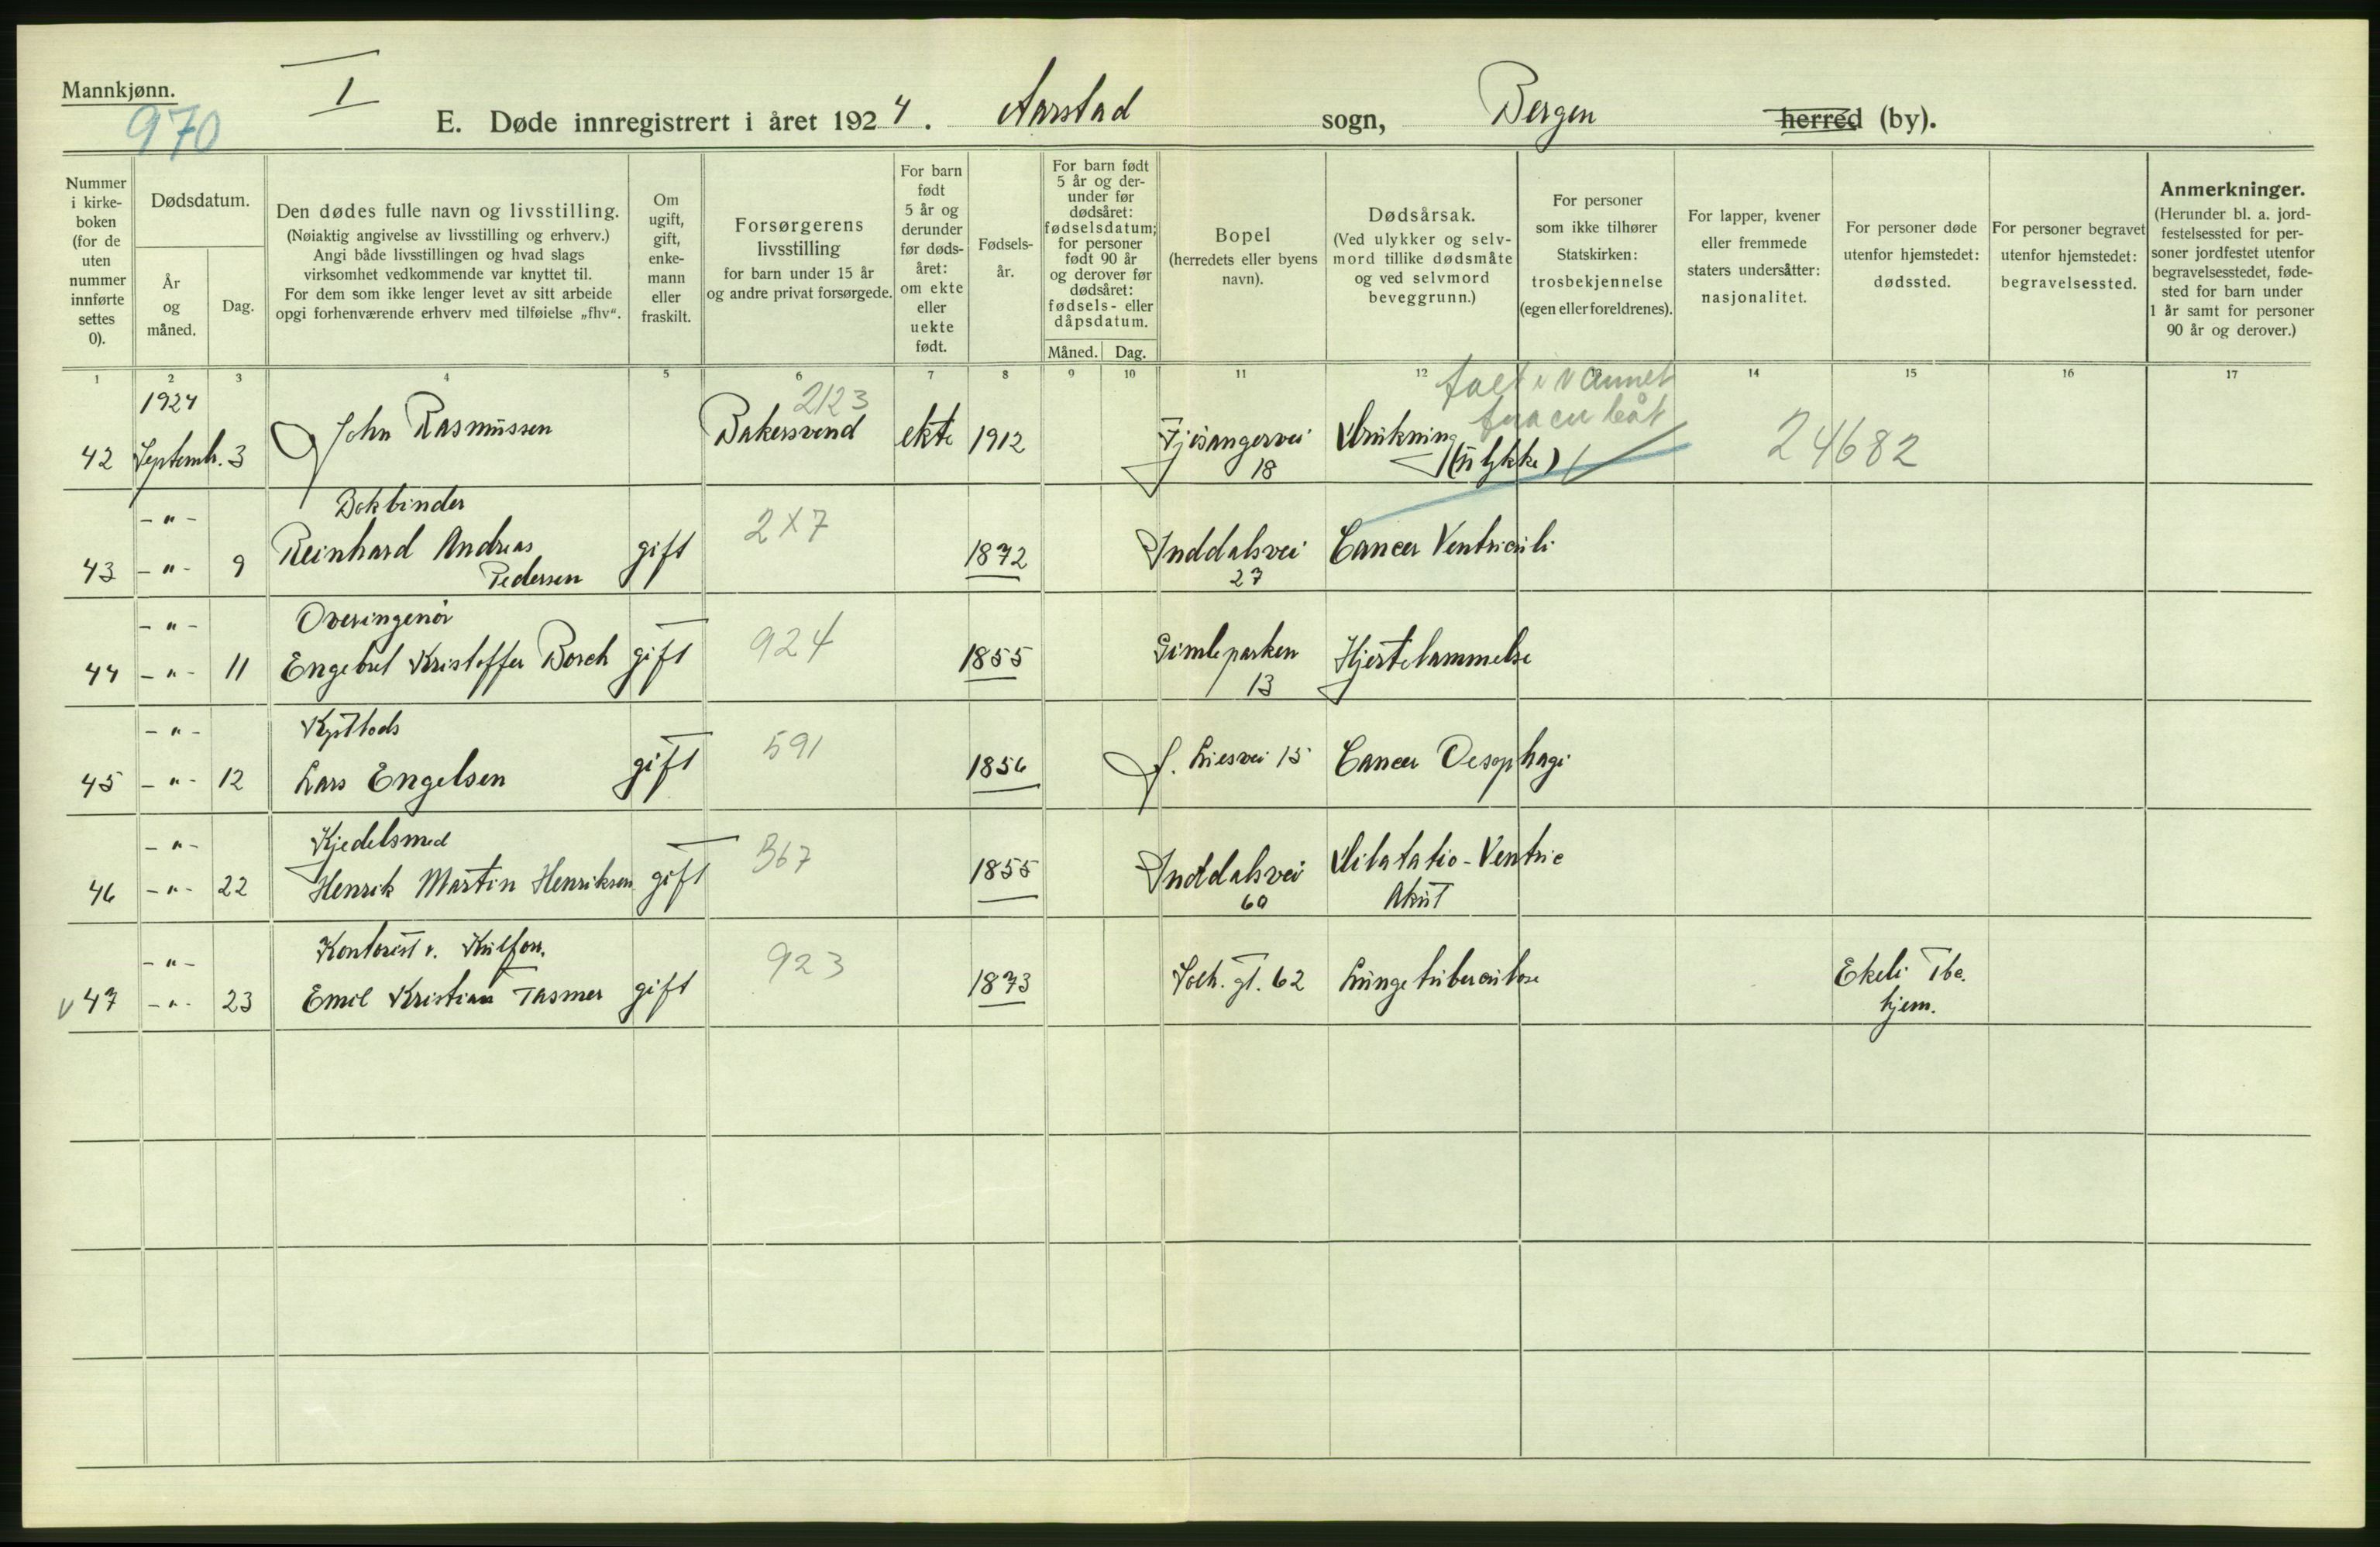 Mannkjønn.
970
I
E. Døde innregistrert i året 1924. Aarstad sogn, Bergen herred (by).
Nummer i kirke- boken (for de uten nummer innførte settes 0).
Dødsdatum.
År og måned.
Dag.
Den dødes fulle navn og livsstilling.
(Nøiaktig angivelse av livsstilling og erhverv.)
Angi både livsstillingen og hvad slags
virksomhet vedkommende var knyttet til.
For dem som ikke lenger levet av sitt arbeide
opgi forhenværende erhverv med tilføielse „fhv“.
Om ugift, gift, enke- mann eller fraskilt.
Forsørgerens livsstilling
for barn under 15 år
og andre privat forsørgede.
For barn født 5 år og derunder før døds- året: om ekte eller uekte født.
Fødsels- år.
For barn født 5 år og der- under før dødsåret: fødselsdatum; for personer født 90 år og derover før dødsåret: fødsels- eller dåpsdatum.
Måned. Dag.
Bopel
(herredets eller byens navn).
Dødsårsak.
(Ved ulykker og selv- mord tillike dødsmåte og ved selvmord beveggrunn.)
For personer som ikke tilhører Statskirken: trosbekjennelse (egen eller foreldrenes).
For lapper, kvener eller fremmede staters undersåtter: nasjonalitet.
For personer døde utenfor hjemstedet: dødssted.
For personer begravet utenfor hjemstedet: begravelsessted.
Anmerkninger.
(Herunder bl. a. jord- festelsessted for per- soner jordfestet utenfor begravelsesstedet, føde- sted for barn under 1 år samt for personer 90 år og derover.)
1 2 3 4 5 6 7 8 9 10 11 12 13 14 15 16 17
1924
2123
falt i vannet
fra en båt
42 Septemb. 3 John Rasmussen Bakersvend ekte 1912 Fjøsangervei 18 Drukning (ulykke) 24682
- " - Bokbinder
43 - " - 9 Reinhard Andreas Pedersen gift 2X7 1872 Inddalsvei 27 Cancer Ventriculi
- " - Overingeniør
44 - " - 11 Engebret Kristoffer Borch gift 924 1855 Gimleparken 13 Hjertelammelse
- " - Kystlods
45 - " - 12 Lars Engelsen gift 591 1856 J. Liesvei 15 Cancer Oesophagi
- " - Kjedelsmed
46 - " - 22 Henrik Martin Henriksen gift 367 1855 Inddalsvei 60 Dilatatio-Ventric Akut
- " - Kontorist v. Kulforr.
v 47 - " - 23 Emil Kristian Tasmer gift 923 1873 Solh. gt. 62 Lungetuberculose Ekeli Tbc. hjem.